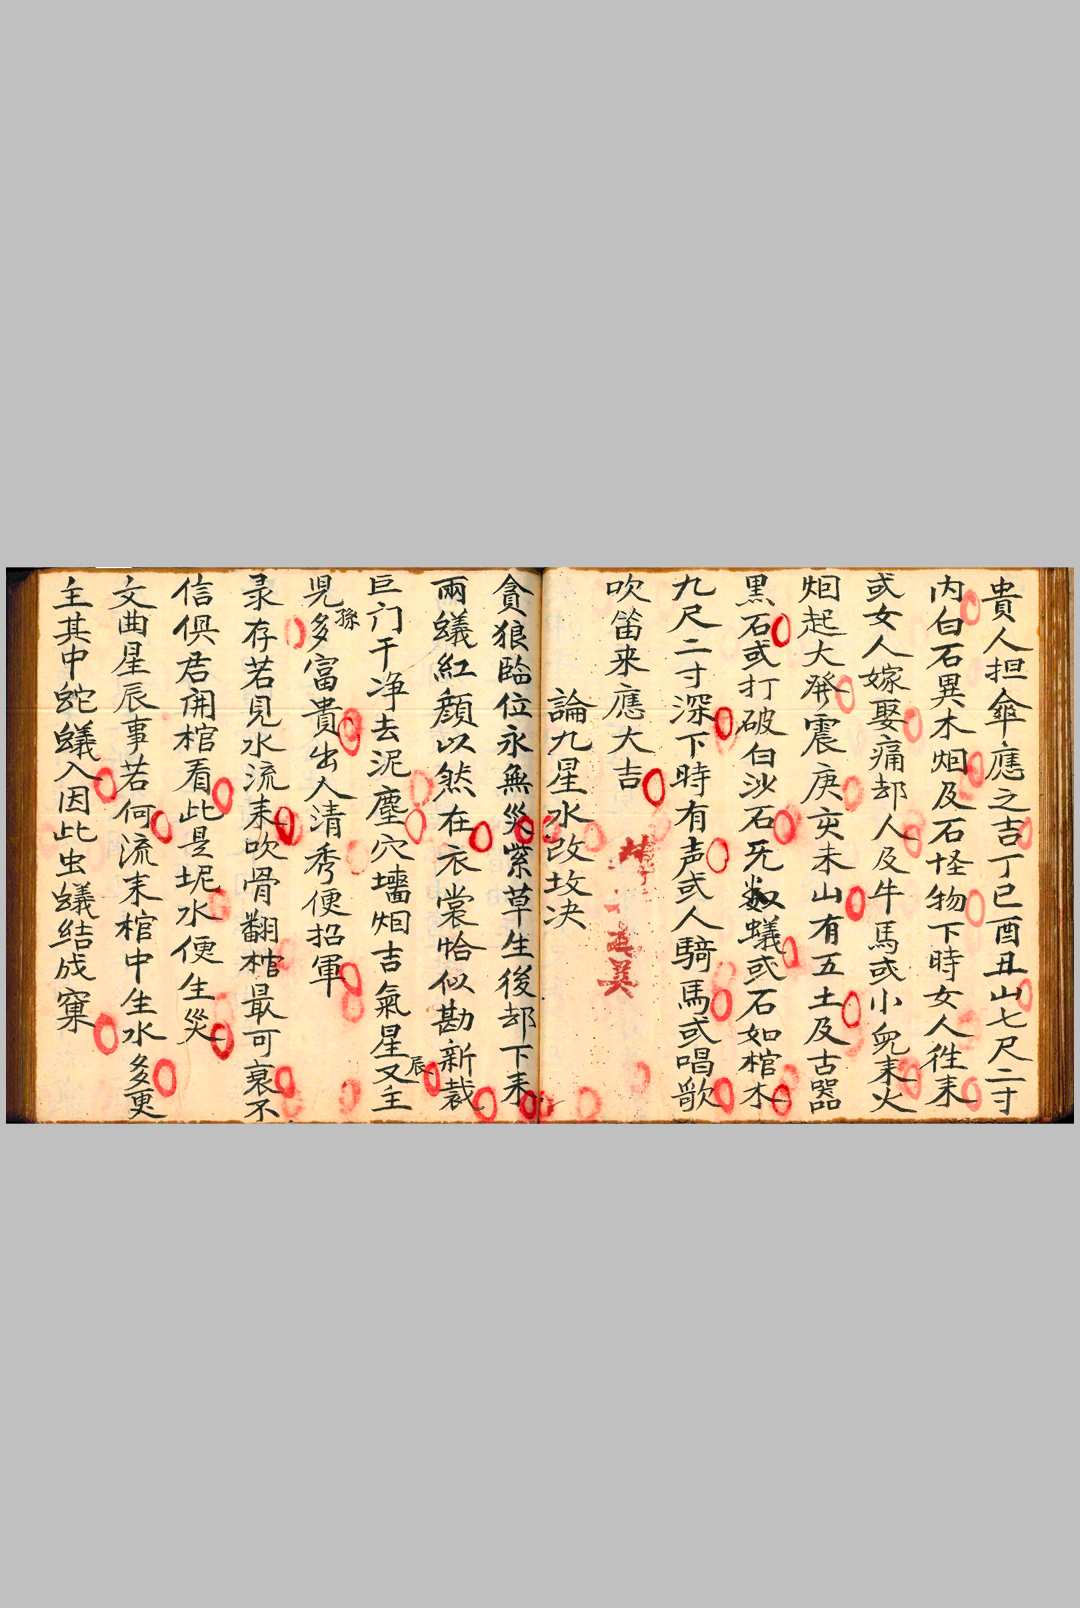 貴人担傘應之吉丁已酉丑山七尺二寸
内白石異木烟及石怪物下時女人徃来
或女人嫁娶痛却人及牛馬或小兒来火
烟起大發震庚亥未山有五土及古器
黒石或打破白沙石死數蟻或石如棺木
九尺二寸深下時有声或人騎馬或唱歌
吹笛来應大吉
論九星水改坟决
貪狼臨位永無災紫草生後却下来
兩蟻紅顔以然在衣裳恰似勘新裁
巨门干净去泥塵穴墻烟吉氣星辰又主
兒孫多富貴出人清秀便招軍
录存若見水流来吹骨翻棺最可哀不
信俱君開棺看此是坭水便生災
文曲星辰事若何流来棺中生水多更
主其中蛇蟻入因此虫蟻結成窠